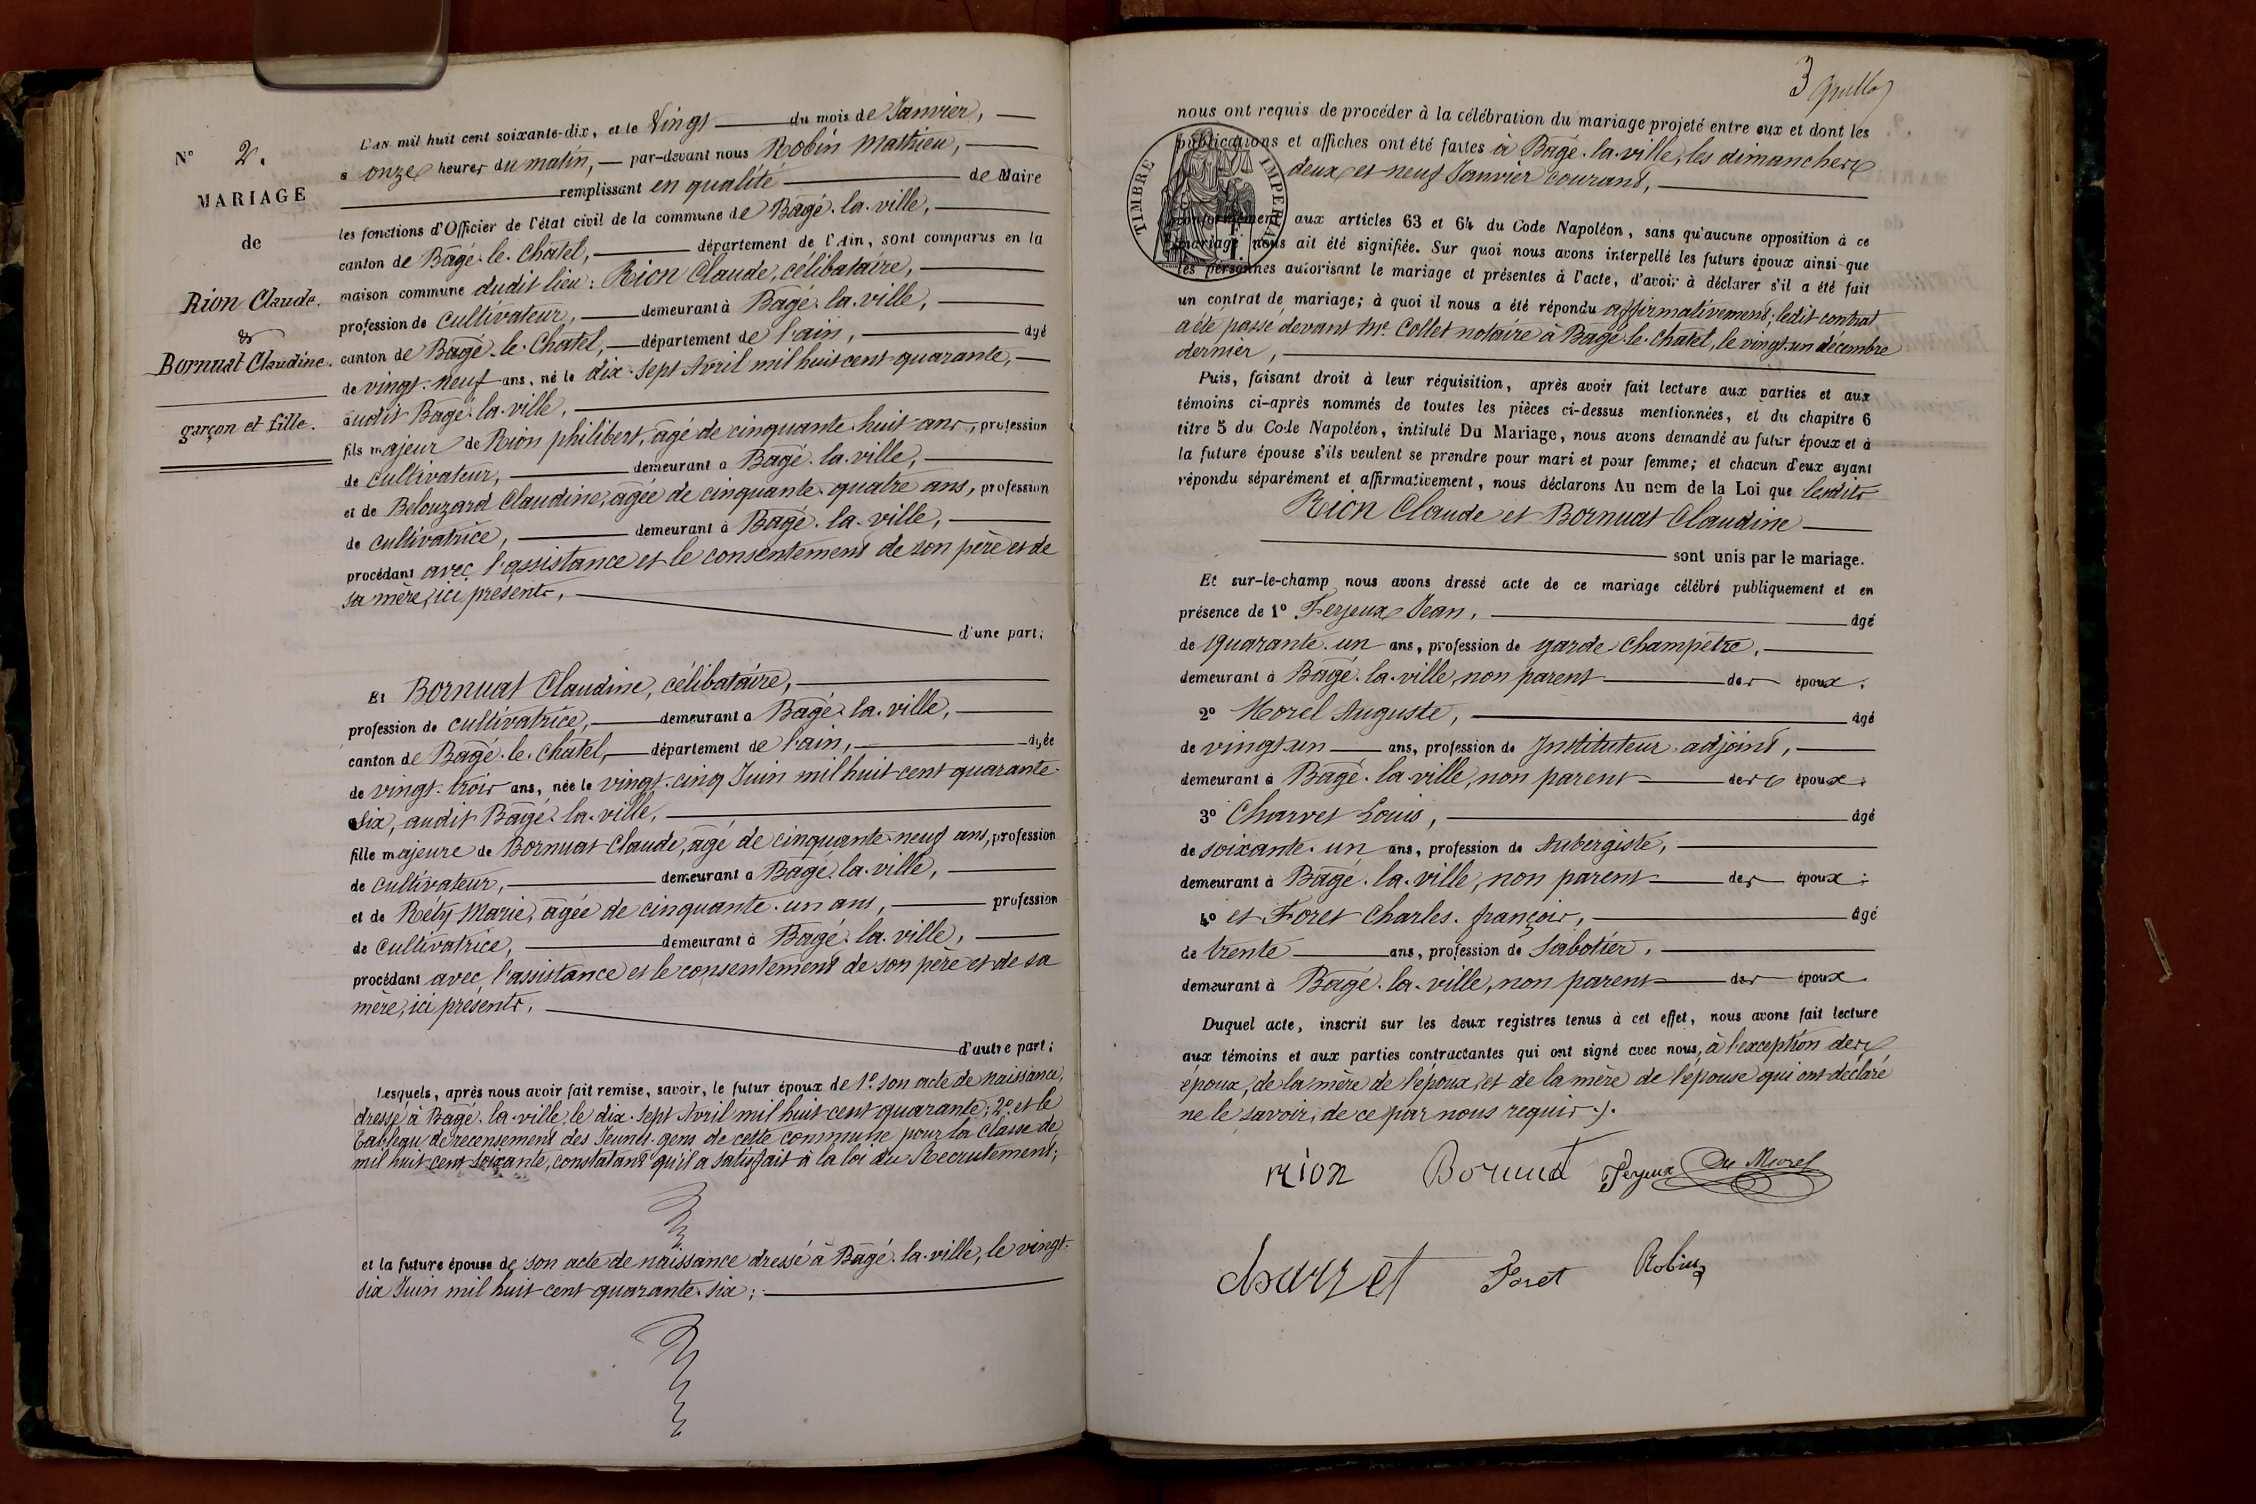 N° 2.
MARIAGE
de
Rion Claude.
&
Bornuat Claudine.
garçon et fille.
L'AN mil huit cent soixante-dix, et le Vingt du mois de Janvier,
à onze heures du matin, par-devant nous Robin Mathieu,
remplissant en qualité de Maire
les fonctions d'Officier de l'état civil de la commune de Bagé-la-ville,
canton de Bagé-le-Chatel, département de l'Ain, sont comparus en la
maison commune dudit lieu : Rion Claude, célibataire,
profession de cultivateur, demeurant à Bagé-la-ville,
canton de Bagé-le-Chatel, département de l'ain, âgé
de vingt-neuf ans, né le dix-sept Avril mil huit cent quarante,
audit Bagé-la-ville,
fils majeur de Rion philibert, âgé de cinquante-huit ans, profession
de cultivateur, demeurant à Bagé-la-ville,
et de Belouzard Claudine, âgée de cinquante-quatre ans, profession
de cultivatrice, demeurant à Bagé-la-ville,
procédant avec l'assistance et le consentement de son père et de
sa mère, ici présents,
d'une part;
Et Bornuat Claudine, célibataire,
profession de cultivatrice, demeurant à Bagé-la-ville,
canton de Bagé-le-chatel, département de l'ain, âgée
de vingt-trois ans, née le vingt-cinq Juin mil huit cent quarante-
six, audit Bagé-la-ville,
fille majeure de Bornuat Claude, âgé de cinquante-neuf ans, profession
de cultivateur, demeurant à Bagé-la-ville,
et de Réty Marie, âgée de cinquante-un ans, profession
de cultivatrice, demeurant à Bagé-la-ville,
procédant avec l'assistance et le consentement de son père et de sa
mère, ici présents,
d'autre part;
Lesquels, après nous avoir fait remise, savoir, le futur époux de 1° son acte de naissance,
dressé à Bagé-la-ville, le dix-sept Avril mil huit cent quarante; 2° et le
tableau de recensement des Jeunes-gens de cette commune pour la classe de
mil huit cent soixante, constatant qu'il a satisfait à la loi du Recrutement;
et la future épouse de son acte de naissance dressé à Bagé-la-ville, le vingt-
six Juin mil huit cent quarante-six;
3
nous ont requis de procéder à la célébration du mariage projeté entre eux et dont les
publications et affiches ont été faites à Bagé-la-ville, les dimanches
deux et neuf Janvier courant,
TIMBRE IMPERIAL
conformément aux articles 63 et 64 du Code Napoléon, sans qu'aucune opposition à ce
mariage nous ait été signifiée. Sur quoi nous avons interpellé les futurs époux ainsi que
les personnes autorisant le mariage et présentes à l'acte, d'avoir à déclarer s'il a été fait
un contrat de mariage; à quoi il nous a été répondu affirmativement; ledit contrat
a été passé devant Me Collet notaire à Bagé-le-Chatel, le vingt-un décembre
dernier,
Puis, faisant droit à leur réquisition, après avoir fait lecture aux parties et aux
témoins ci-après nommés de toutes les pièces ci-dessus mentionnées, et du chapitre 6
titre 5 du Code Napoléon, intitulé Du Mariage, nous avons demandé au futur époux et à
la future épouse s'ils veulent se prendre pour mari et pour femme; et chacun d'eux ayant
répondu séparément et affirmativement, nous déclarons Au nom de la Loi que lesdits
Rion Claude et Bornuat Claudine
sont unis par le mariage.
Et sur-le-champ nous avons dressé acte de ce mariage célébré publiquement et en
présence de 1° Ferjeux Jean, âgé
de quarante-un ans, profession de garde-champêtre,
demeurant à Bagé-la-ville, non parent des époux;
2° Morel Auguste, âgé
de vingt-un ans, profession de Instituteur-adjoint,
demeurant à Bagé-la-ville, non parent des époux;
3° Charvet Louis, âgé
de soixante-un ans, profession de Aubergiste,
demeurant à Bagé-la-ville, non parent des époux;
4° et Foret Charles-françois, âgé
de trente ans, profession de Sabotier,
demeurant à Bagé-la-ville, non parent des époux
Duquel acte, inscrit sur les deux registres tenus à cet effet, nous avons fait lecture
aux témoins et aux parties contractantes qui ont signé avec nous, à l'exception des
époux, de la mère de l'époux, et de la mère de l'épouse qui ont déclaré
ne le savoir, de ce par nous requis.
Rion Bornuat Ferjeux Au Morel
charvet Foret Robin